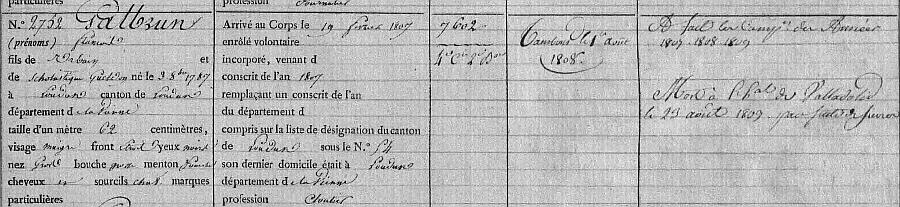 particulières
profession
N.° 2752 Galbrun
(prénoms) florent
fils de et
de Scholastique né le 3 8bre 1787
à Loudun canton de Loudun
département d e la Vienne
taille d'un mètre 62 centimètres,
visage maigre front étroit yeux noirs
nez gros bouche menton
cheveux id sourcils chat. marques
particulières
Arrivé au Corps le 19 février 1807
enrôlé volontaire
incorporé, venant d
conscrit de l'an 1807
remplaçant un conscrit de l'an
du département d
compris sur la liste de désignation du canton
de Loudun sous le N.° 54
son dernier domicile était à Loudun
département d e la Vienne
profession Cloutier
7602
4e Cie 2e Bon
Tambour le 1er août
1808
A fait les Campes de
1807 1808 1809
Mort à l'hal de Valladolid
le 23 août 1809 par suite de fièvre